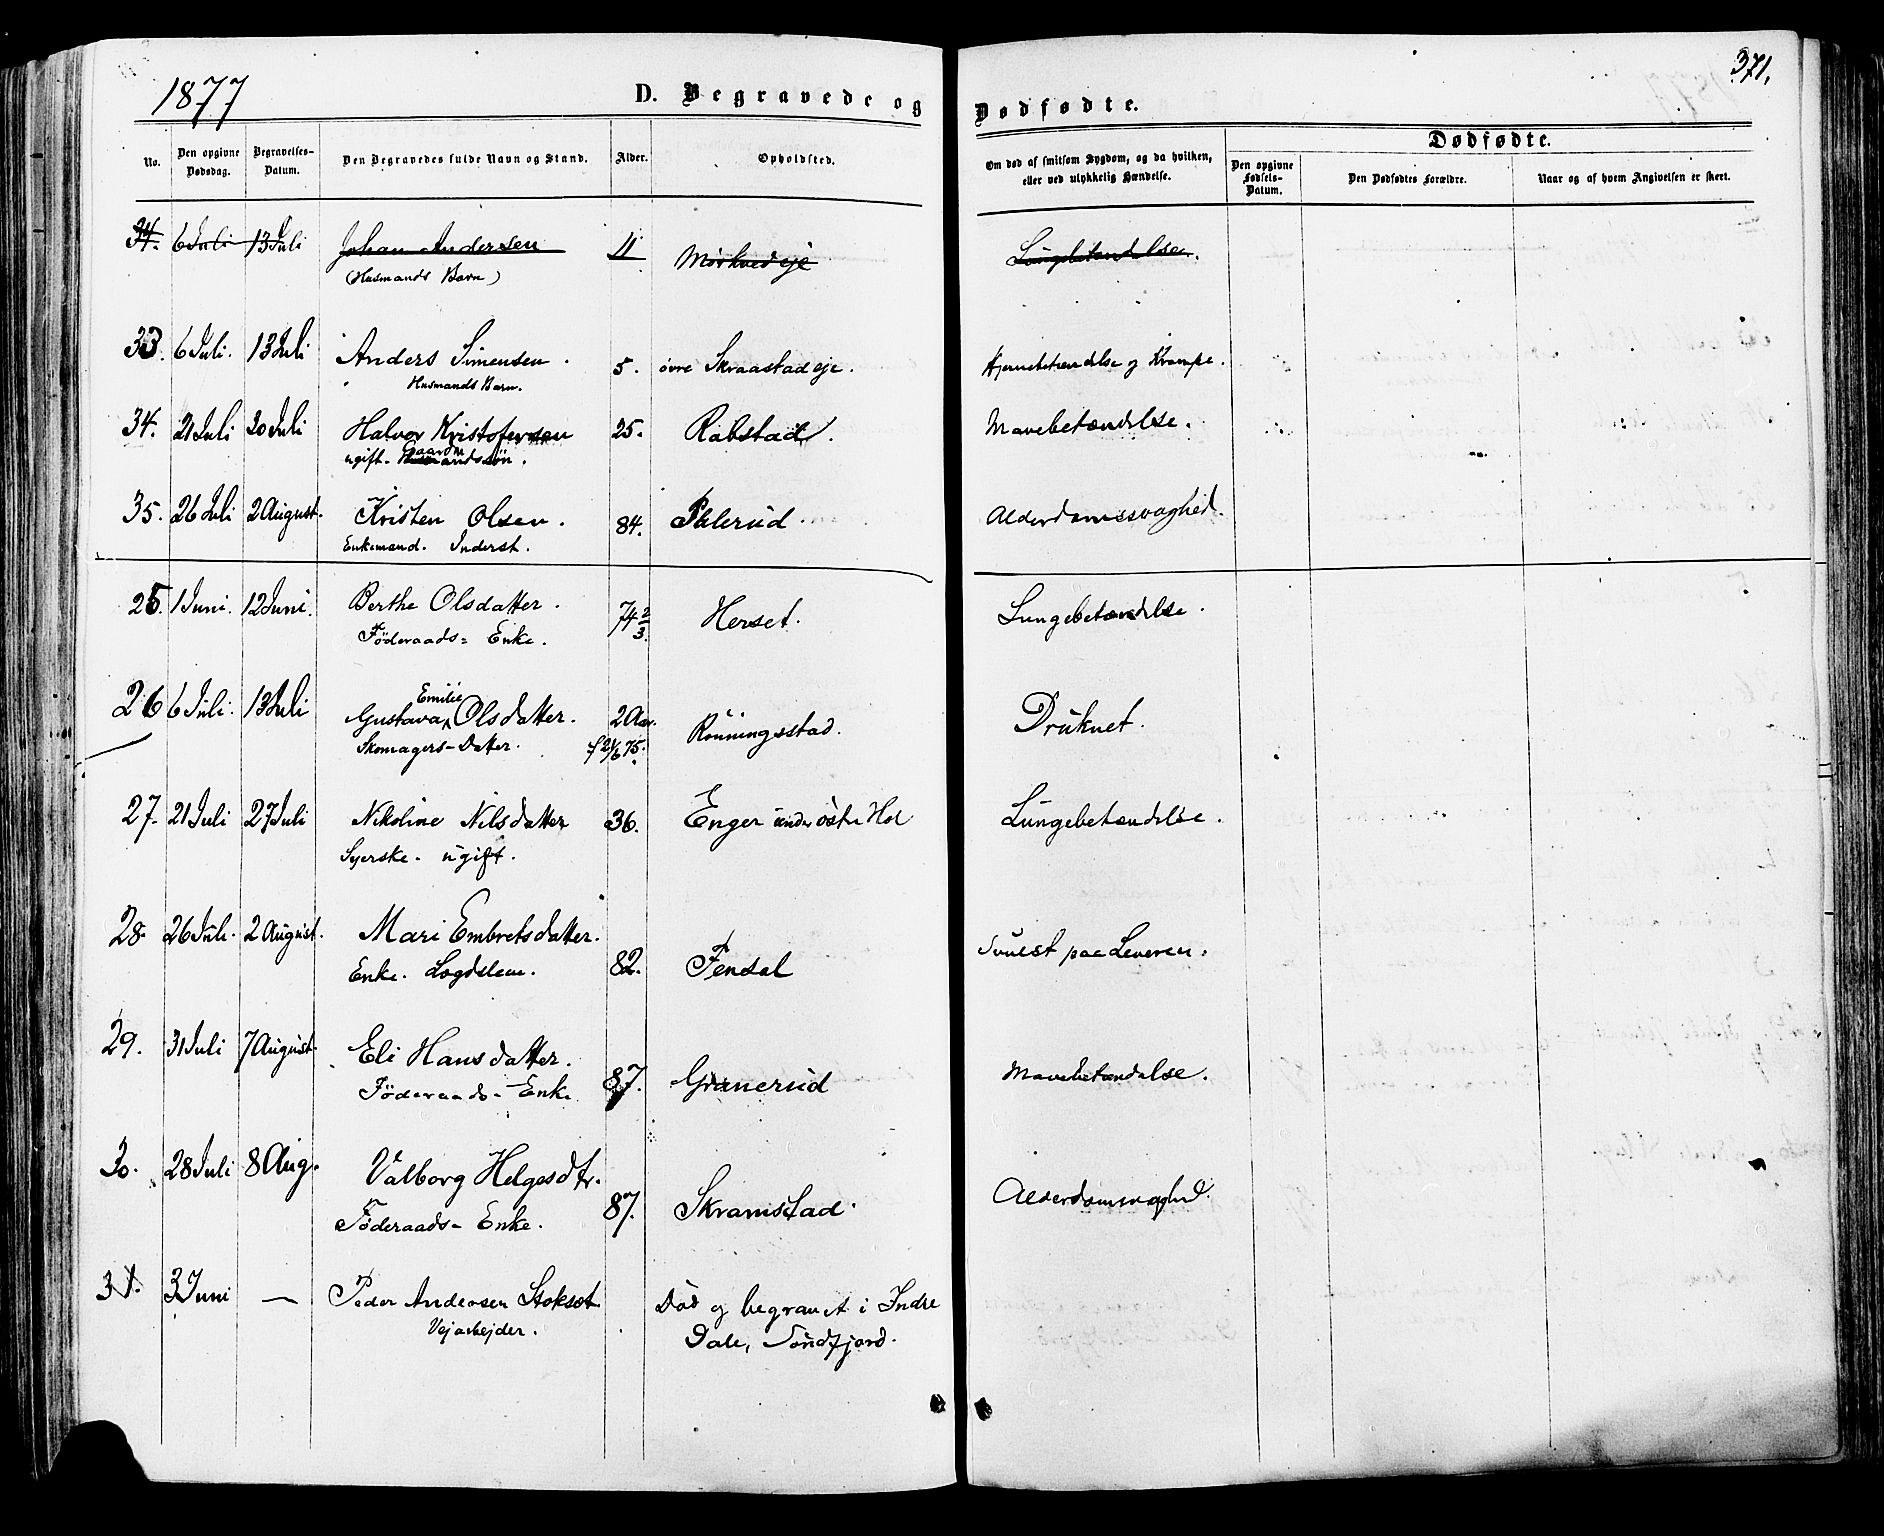 1877
371.
D. Begravede og Dødfødte.
Dødfødte.
No.
Den opgivne Dødsdag.
Begravelses-Datum.
Den Begravedes fulde Navn og Stand.
Alder.
Opholdsted.
Om død af smitsom Sygdom, og da hvilken, eller ved ulykkelig Hændelse.
Den opgivne Fødsels-Datum.
Den Dødfødtes Forældre.
Naar og af hvem Angivelsen er skeet.
34. 6 Juli 13 Juli Johan Andersen 11 Mörkved eje Lungebetændelse.
(Husmands Barn)
33. 6 Juli. 13 Juli Anders Simensen. 5. övre Skraastad eje. Hjernebetændelse og Krampe.
Husmands Barn.
34. 21 Juli 30 Juli Halvor Kristofersen 25. Rabstad. Mavebetændelse.
ugift. Gaardm
35. 26 Juli 2 August. Kristen Olsen. 84. Pålerud Alderdomssvaghed.
Enkemand. Inderst.
25. 1 Juni. 12 Juni. Berthe Olsdatter. 74 2/3. Herset. Lungebetændelse.
Föderaads= Enke.
26 6 Juli. 13 Juli Gustava Emilie Olsdatter. 2 Aar. Rönningsstad. Druknet.
Skomagers-Datter. f 21/6 75.
27. 21 Juli 27 Juli Nikoline Nilsdatter 36. Enger under östre Hol Lungebetændelse.
Syerske. ugift.
28. 26 Juli. 2 August. Mari Embretsdatter. 82. Fendal Svulst paa Leveren.
Enke. Lægdslem.
29. 31 Juli 7 August. Eli Hansdatter. 87. Granerud Mavebetændelse.
Föderaads- Enke
30. 28 Juli 8 Aug. Valborg Helgesdtr. 87. Skramstad. Alderdomssvaghed.
Föderaads- Enke.
31. 3 Juni — Peder Andersen Stokset Död og begravet i Indre
Vejarbejder. Dale, Söndfjord.